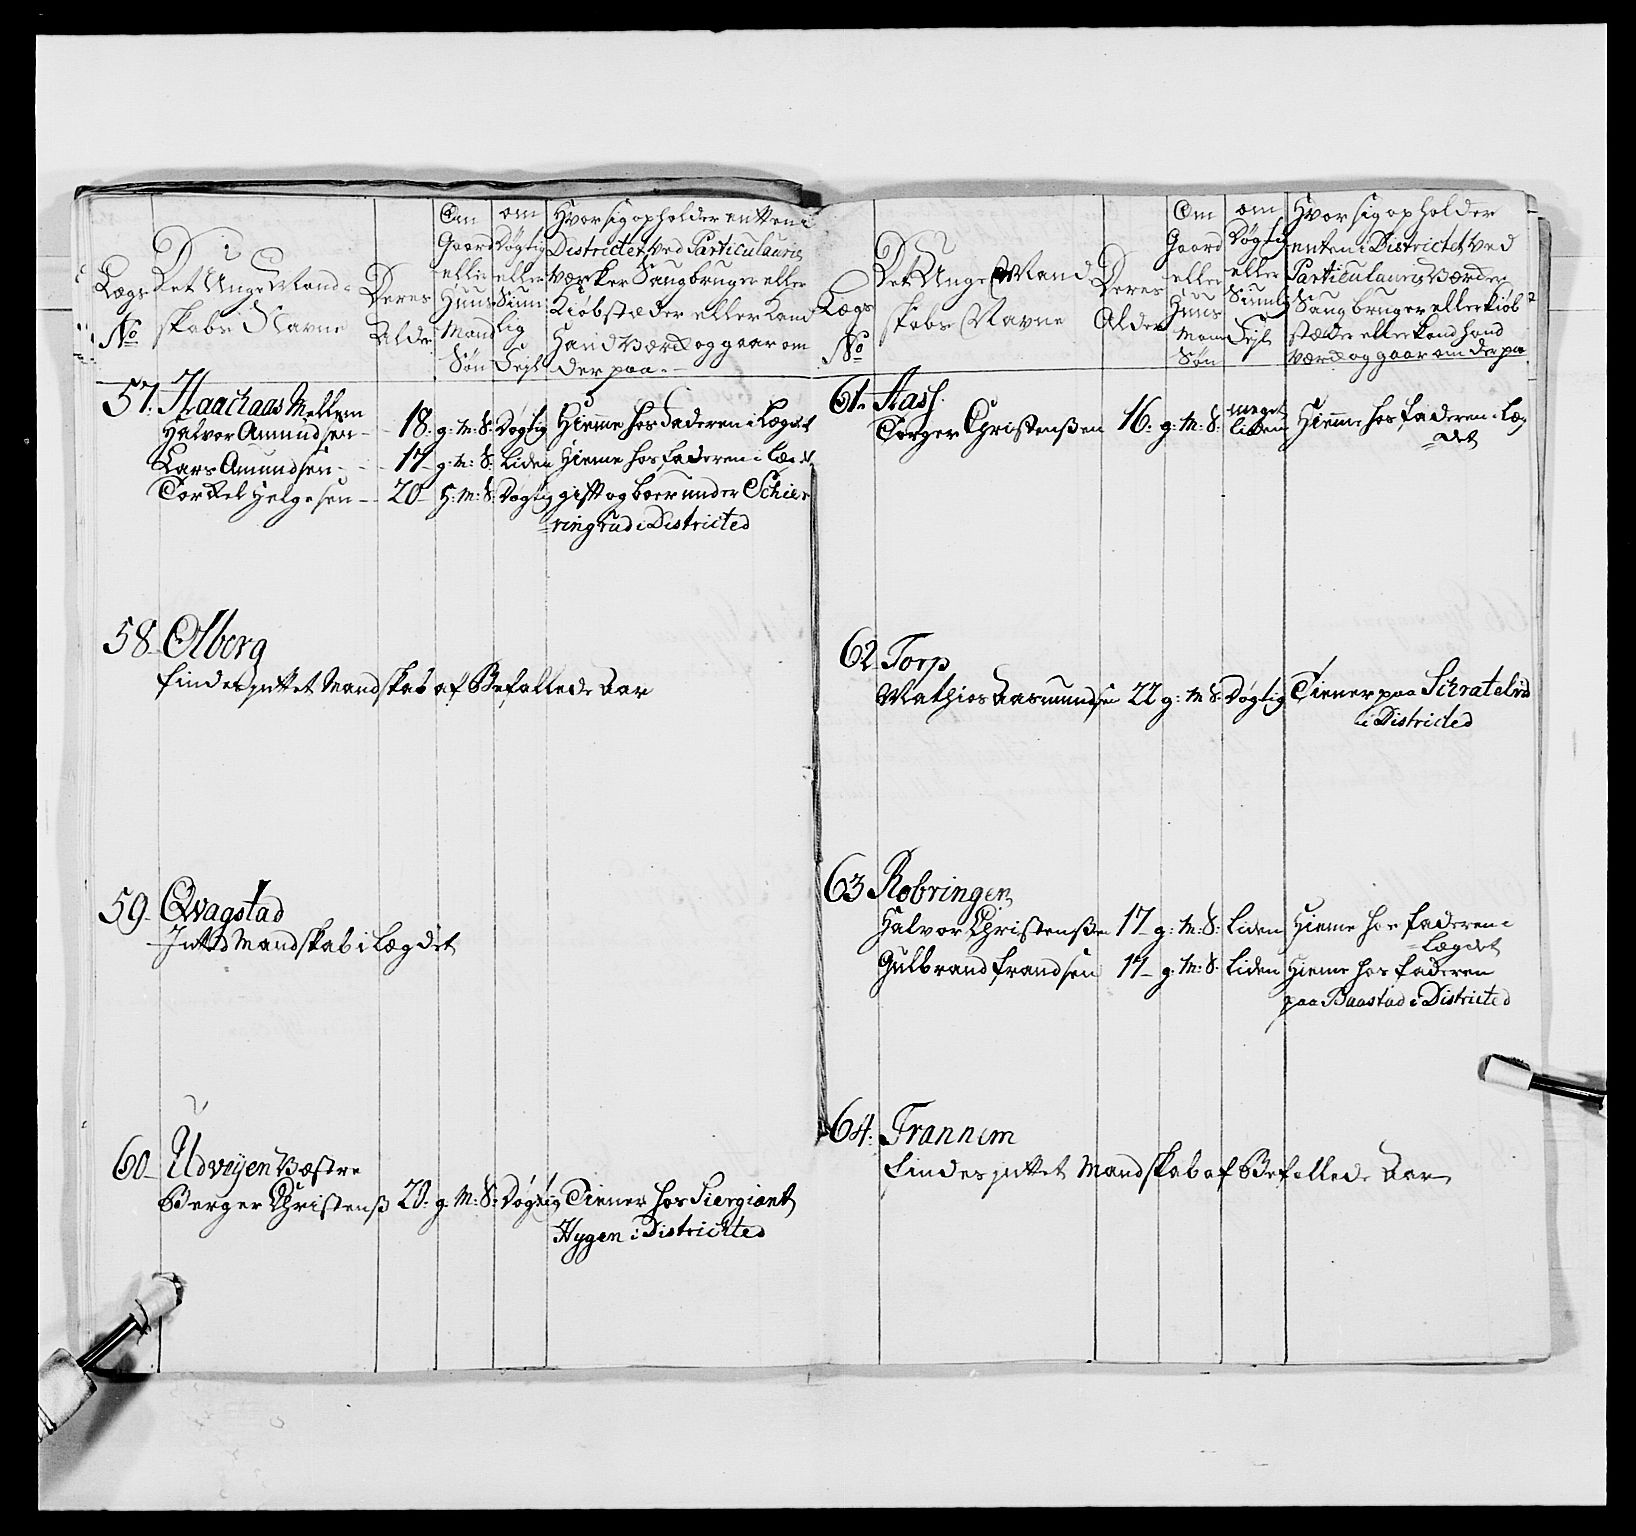 Lægs
No
Det Unge Mand-
skabs Navne
Deres
Alder
Om
Gaard
eller
Huus
Mand
Søn
om
Døgtig
eller
Siun
lig
Fejl
Hvor sig opholder entten i
Districtet ved Particulaurii
Værcker Saugbruger eller
Kiøbstæder eller Kand
Handværck og gaar om
der paa.
57. Haachaas Mellem
Halvor Amundsen - 18. g: M: S: Døgtig Hieme hos Faderen i Lægdet
Lars Amundsen - 17 - g: M: S: Liden Hieme hos Faderen i Lægdet
Torkel Helgesen - 20 - H: M: S: Døgtig gift og boer under Schie-
=ringrud i Districted
58 Olberg
Findes intet Mandskab af Befallede Aar
59 - Qvagstad
Intet Mandskab i Lægdet
60 - Udvejen Væstre
Berger Christenß 20. g: M: S: Døgtig Tiener hos Siergiant
Hygen i Districhted
Lægs
No
Det Unge Mand
skabs Navne
Deres
Alder
Om
Gaard
eller
Huus
Mans
Søn
om
Døgtig
eller
Siunlig
Fejl
Hvor sig opholder
enten i Districtet ved
Particulauris Værcker
Saugbruger eller Kiøb
stæder eller kand hand
værck og gaar om der paa
61. Aass.
Torger Christenßen 16. g: M: S: meget liden Hieme hos Faderen i Læg
=det
62 Torp
Mathies Aasmundsen 22 g: M: S: Døgtig Tiener paa Schratelrud
i Districted
63 Robringen
Halvor Christenßen 17 - g: M: S: Liden Hieme hos Faderen i
=Lægdet
Gulbrand Frandsen 17 - g: M: S: Liden Hieme hos Faderen
paa Baastad i Districted
64. Frannem
Findes intet Mandskab af Befallede Aar